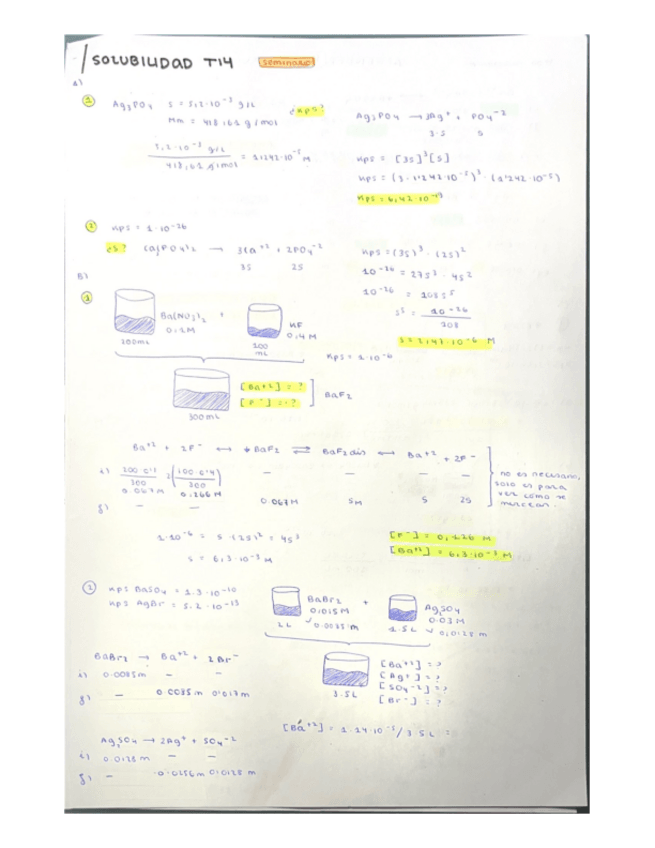 SOLUBILIDAD T14 seminario
A)
1 Ag3PO4 s = 5,2·10⁻³ g/L ¿Kps?
Mm = 418,61 g/mol
5,2·10⁻³ g/L / 418,61 g/mol = 1,242·10⁻⁵ M
Ag3PO4 → 3Ag⁺ + PO4⁻³
3·S S
Kps = [3S]³[S]
Kps = (3·1'242·10⁻⁵)³·(1'242·10⁻⁵)
Kps = 6,42·10⁻¹⁹
2 Kps = 1·10⁻²⁶
¿S? Ca3(PO4)2 → 3Ca⁺² + 2PO4⁻²
3S 2S
Kps = (3S)³·(2S)²
10⁻²⁶ = 27S³·4S²
10⁻²⁶ = 108S⁵
S⁵ = 10⁻²⁶ / 108
S = 2,47·10⁻⁶ M
B)
1 Ba(NO3)2 + HF
0,1M 0,4M
100mL 200 mL
Kps = 1·10⁻⁶
[Ba⁺²] = ?
[F⁻] = ?
BaF2
300mL
Ba⁺² + 2F⁻ ↔ ↓BaF2 ⇌ BaF2 dis ↔ Ba⁺² + 2F⁻
i) 200·0'1 / 300 2(200·0'4 / 300) — — — —
0.067M 0,266M
f) — — 0.067M SM S 2S
no es necesario,
solo es para
ver cómo se
1·10⁻⁶ = S·(2S)² = 4S³
S = 6,3·10⁻³ M
[F⁻] = 0,126 M
[Ba⁺²] = 6,3·10⁻³ M
2 Kps BaSO4 = 1.3·10⁻¹⁰
Kps AgBr = 5.2·10⁻¹³
BaBr2 + Ag2SO4
0,015M 0.03M
2L 0.0085m 1.5L 0,0128 m
3.5L
[Ba⁺²] = ?
[Ag⁺] = ?
[SO4⁻²] = ?
[Br⁻] = ?
BaBr2 → Ba⁺² + 2Br⁻
i) 0.0085m — —
f) — 0.0085m 0'017m
[Ba⁺²] = 1.14·10⁻⁵/3.5L =
Ag2SO4 → 2Ag⁺ + SO4⁻²
i) 0.0128m — —
f) — 0.0256m 0,0128 m